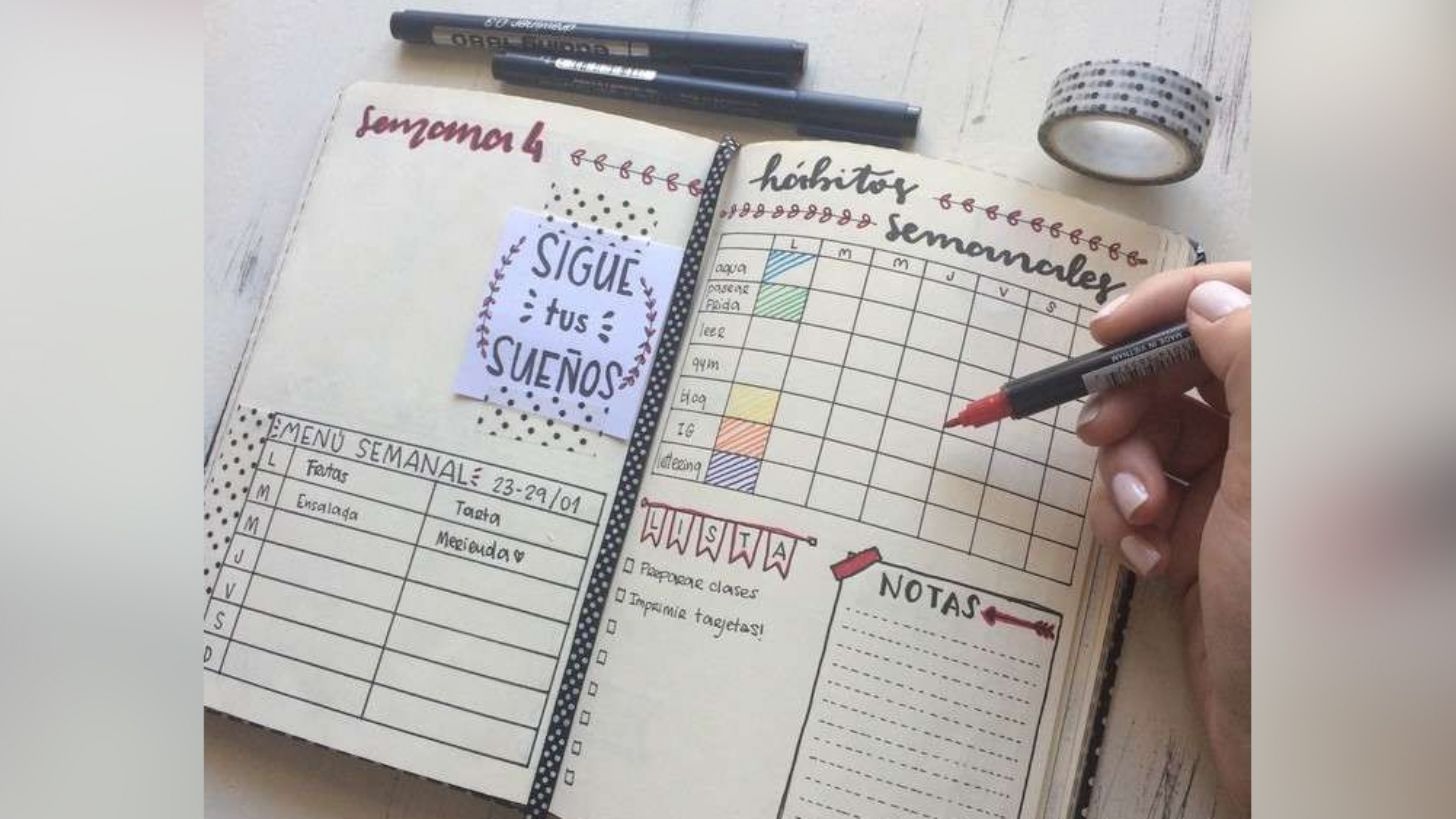 semana 4
SIGUE
tus
SUEÑOS
MENÚ SEMANAL 23-29/01
L Frutas Tarta
M Ensalada Merienda♥
M
J
V
S
D
hábitos
semanales
L M M J V S
agua
pasear
Frida
leer
gym
blog
IG
lettering
LISTA
Preparar clases
Imprimir tarjetas!
NOTAS
MADE IN VIETNAM